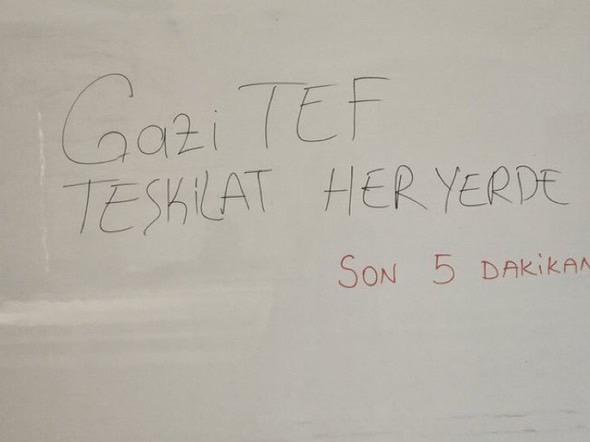 Gazi TEF
TESKiLAT HER YERDE
SON 5 DAKiKAN